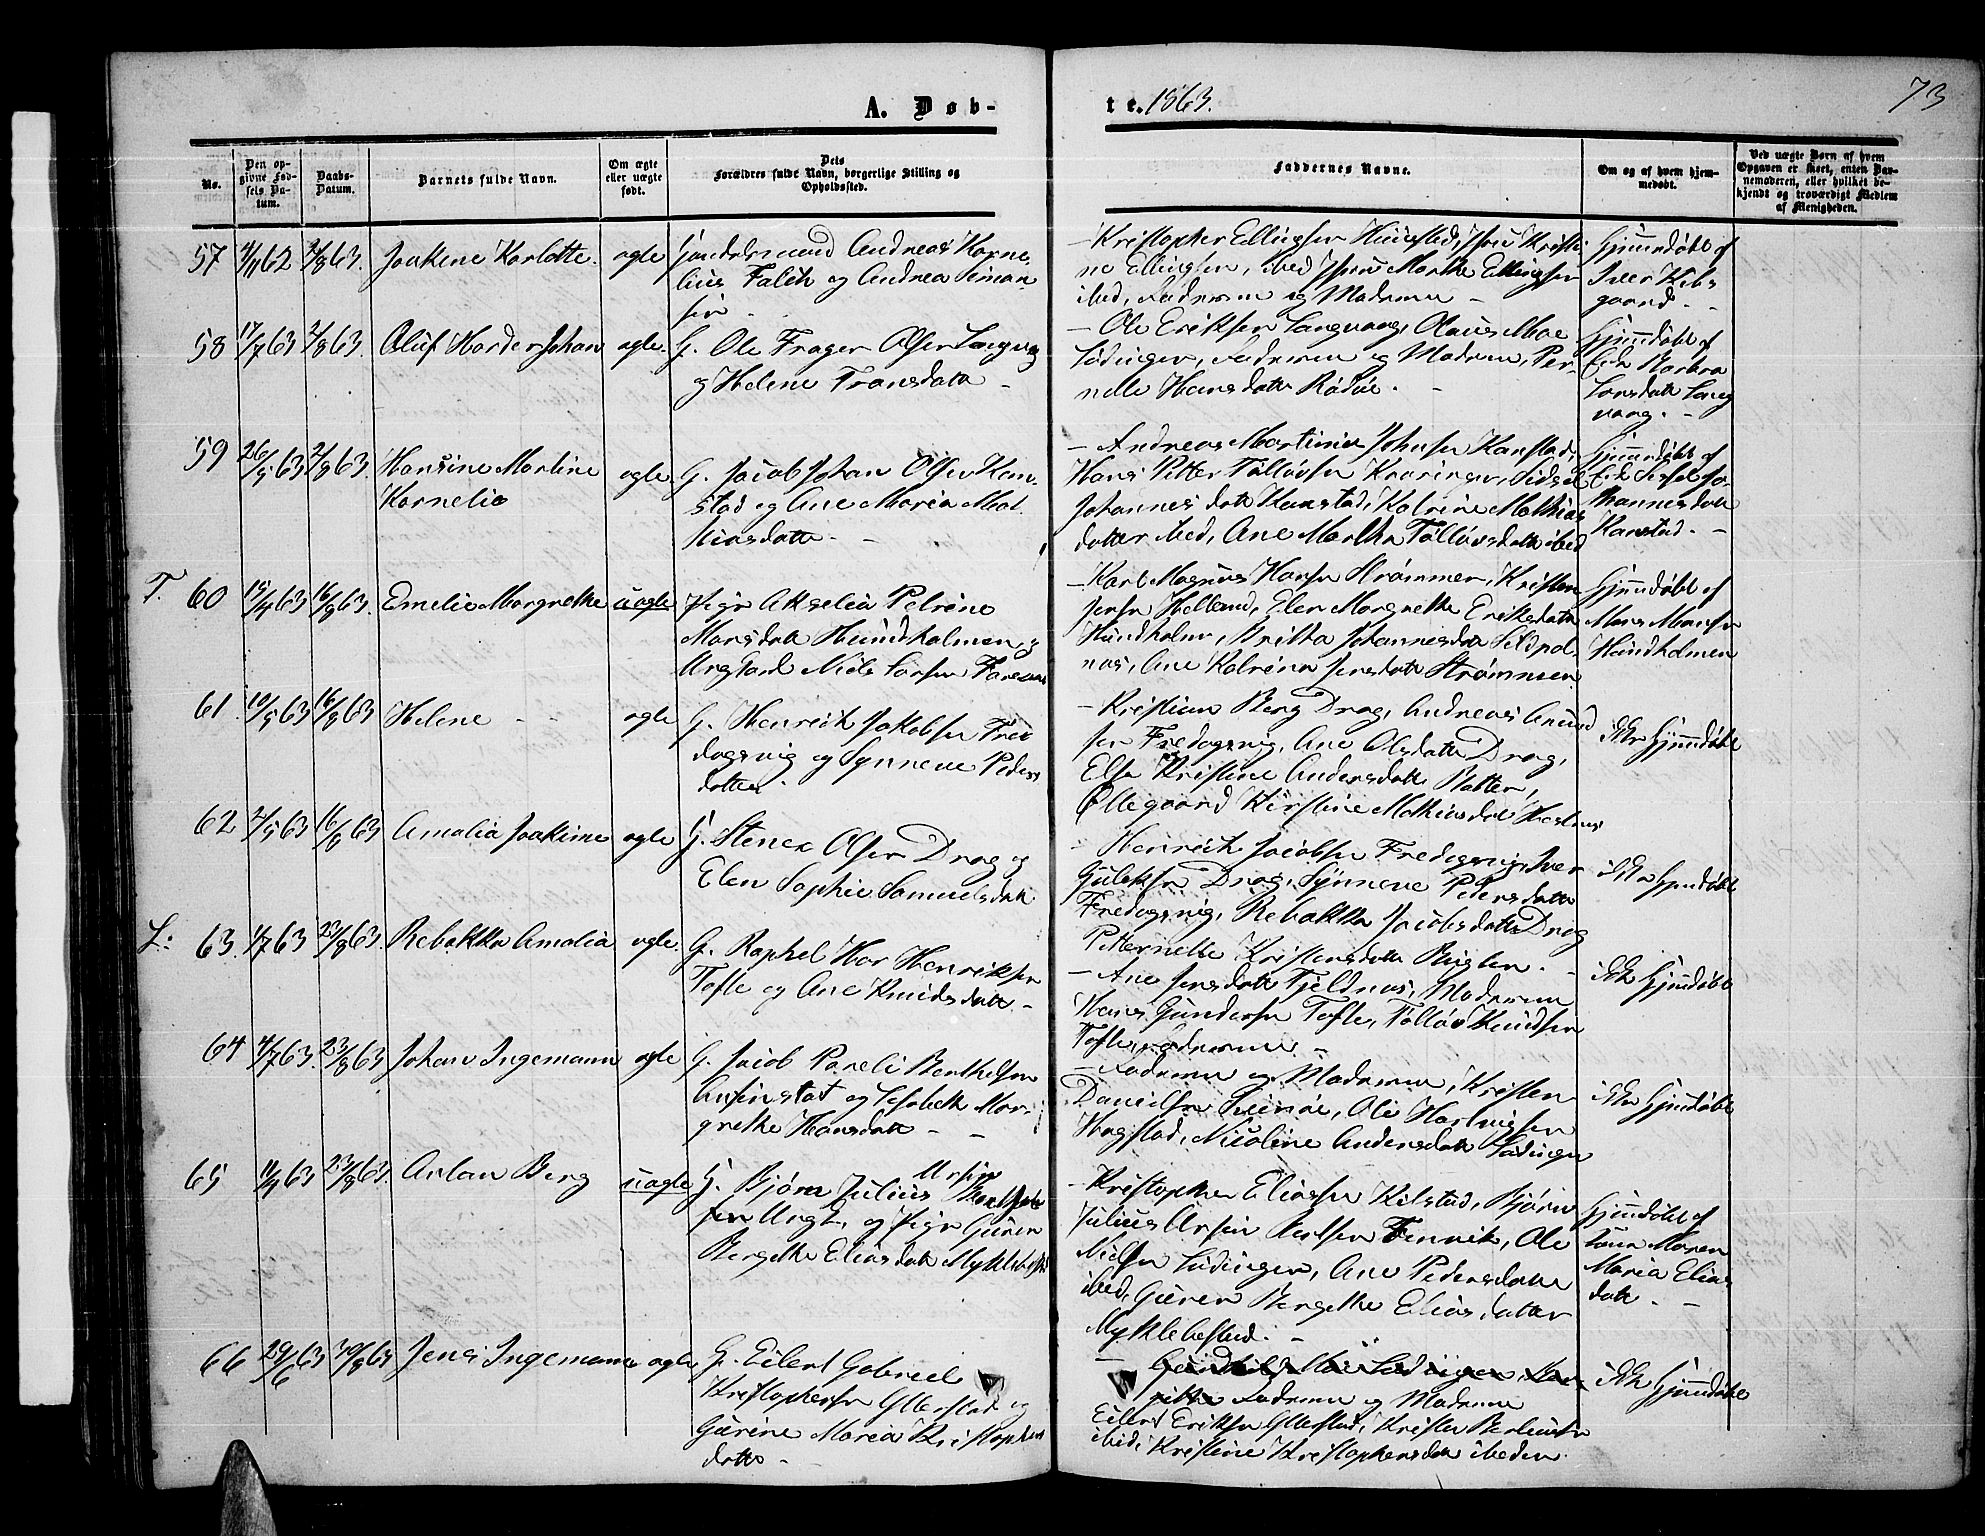 73
A. Døb-
te. 1863.
No.
Den op-
givne Fød-
sels Da-
tum.
Daabs-
Datum.
Barnets fulde Navn.
Om ægte
eller uægte
født.
Dets
Forældres fulde Navn, borgerlige Stilling og
Opholdssted.
Faddernes Navne.
Om og af hvem hjem-
medøbt.
Ved uægte Børn af hvem
Opgaven er skeet, enten Bar-
nemoderen, eller hvilket be-
kjendt og troværdigt Medlem
af Menigheden.
57 4/11 62 2/8 63. Joakine Karlotte. ægte Handelsmand Andreas Korne-
lius Falch og Andrea Siman-
sen
- Kristopher Ellingsen Kristi-
ne Ellingsen, ibed Marthe Ellingsen
ibed, Faderen og Moderen -
Hjemdøbt af
Iver Kibs-
gaard. -
58 17/7 63 2/8 63. Oluf Harder Johan ægte. G. Ole Frager Olsen Langvag
og Helene Fransdatt -
- Ole Eriksen Langvaag, Olaus Moe
Lødingen, Faderen og Moderen, Per-
nelle Hansdatt Rødøe. -
Hjemdøbt af
Enk Barbra
Larsdatt Lang
vaag. -
59 26/5 63 2/8 63. Hansine Martine
Kornelia
ægte G. Jacob Johan Olsen Kan-
stad og Ane Maria Mat-
hiasdatt. -
- Andreas Martinus Johnsen Kanstad,
Hans Pitter Tølløvsen Kraringen, Sidsel
Johannesdatt Kanstad, Katrine Mathias
datter ibed, Ane Martha Tølløvsdatt ibed
Hjemdøbt af
Enk Sidsel Jo-
hannesdatt
Kanstad. -
T. 60 15/4 63 16/8 63. Emelie Margrethe uægte Pige Akselia Petrine
Monsdatt Hundholmen og
Ungkarl Niels Larsen
- Karl Magnus Hansen Strømmen, Kristen
Jensen Helland, Elen Margrethe Eriksdatt
Hundholm, Britta Johannesdatt
Ane Katrina Jensdatt Strømmen
Hjemdøbt af
Mons Monsen
Hundholmen
61 10/5 63 16/8 63 Helene - - ægte G. Henrich Jakobsen Fre-
dagsvig og Synneve Peders
datter.
- Kristian Berg Drag, Andreas Amund
sen Fredagsvig, Ane Olsdatt Drag,
Else Kristine Andersdatt
Ollegaard Kirstine Mathiasdatt
Ikke Hjemdøbt
62 2/5 63 16/8 63 Amalia Joakime ægte G. Stener Olsen Drag og
Elen Sophie Samuelsdatt
- Henrich Jacobsen Fredagsvig, Iver
Drag, Synneve Pedersdatt
Fredagsvig, Rebakka Jacobsdatt Drag
Petternelle Kristensdatt -
Ikke Hjemdøbt
L: 63. 1/7 63 23/8 63. Rebakka Amalia ægte. G. Raphel Har Henriksen
Tofte og Ane Knudsdatt -
- Ane Jensdatt Fjeldnas, Moderen
Hans Gundersen Tofte, Tølløv Knudsen
Tofte, Faderen -
Ikke Hjemdøbt
64 4/7 63. 23/8 63 Johan Ingemann ægte G. Jacob Pareli Berthelsen
og Lisabeth Mar-
grethe Hansdatt - -
- Faderen og Moderen, Kristen
Danielsen Svinøe, Ole Hartvigsen
Hagstad, Nicoline Andersdatt Lødingen
Ikke Hjemdøbt
65 23/8 63. Berg uægte G. Bjørn Julius Ursin
Ungk. og Pige Guren
Bergithe Eliasdatt Myklebostad
- Kristopher Eliassen Kilstad, Bjørn
Julius Ursin Fenvik, Ole
Nielsen Lødingen, Ane Pedersdatt
ibed, Guren Bergithe Eliasdatter
Myklebostad. -
Hjemdøbt af
Maren
Maria Elias
datt. -
66 29/6 63 30/8 63 Jens Ingemann ægte G. Eilert Gabriel
Kristophersen Yllestad og
Gurine Maria Kristophers
datt. -
Faderen og Moderen
Eilert Eriksen Yllestad, Kristen
ibid, Kristine Kristophersdatt ibeden.
Ikke Hjemdøbt